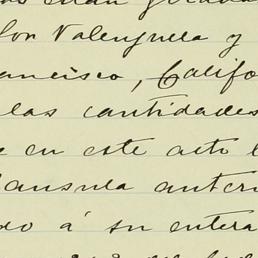 Valenzuela y
ancisco, Califo
las cantidades
e en este acto l
lausula anteri
do á su entera